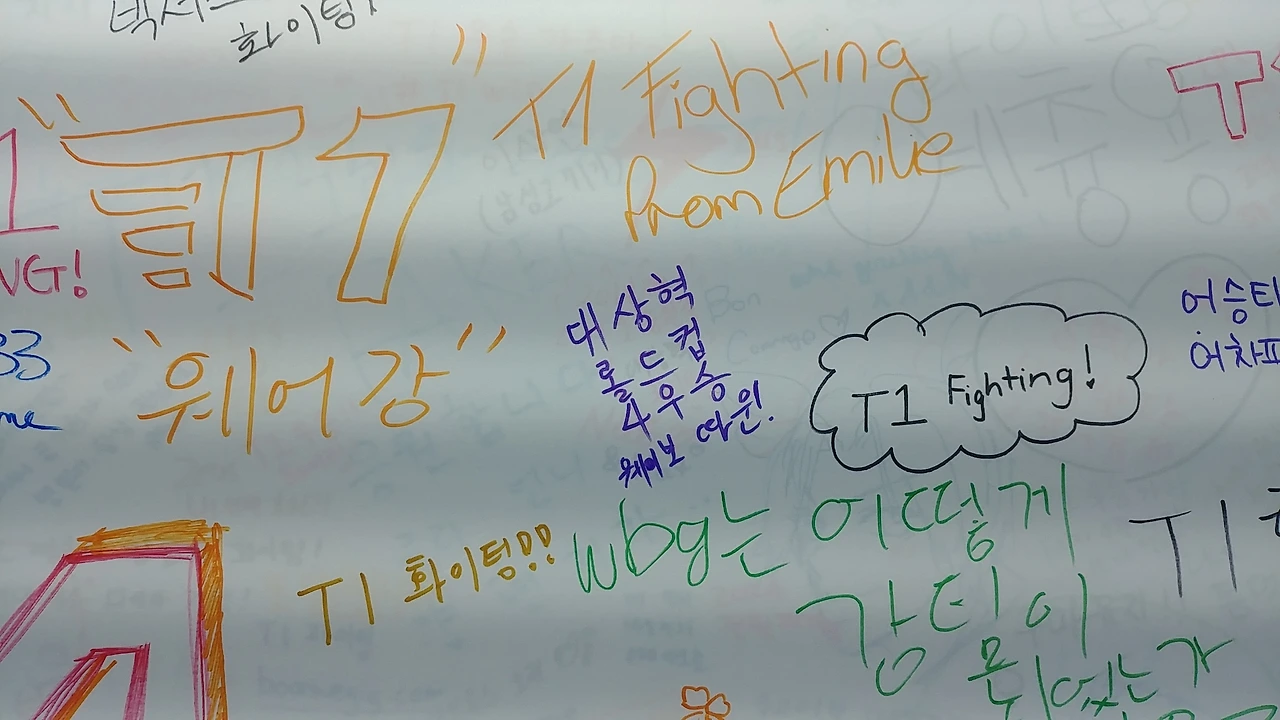 화이팅!
T1 Fighting
From Emilie
NG!
"웨어강"
대상혁
롤드컵
4우승
웨이보 따윈.
T1 Fighting!
어승티
어차피
T1 화이팅!!
wbg는 어떻게
강팀이
되었는가
T1